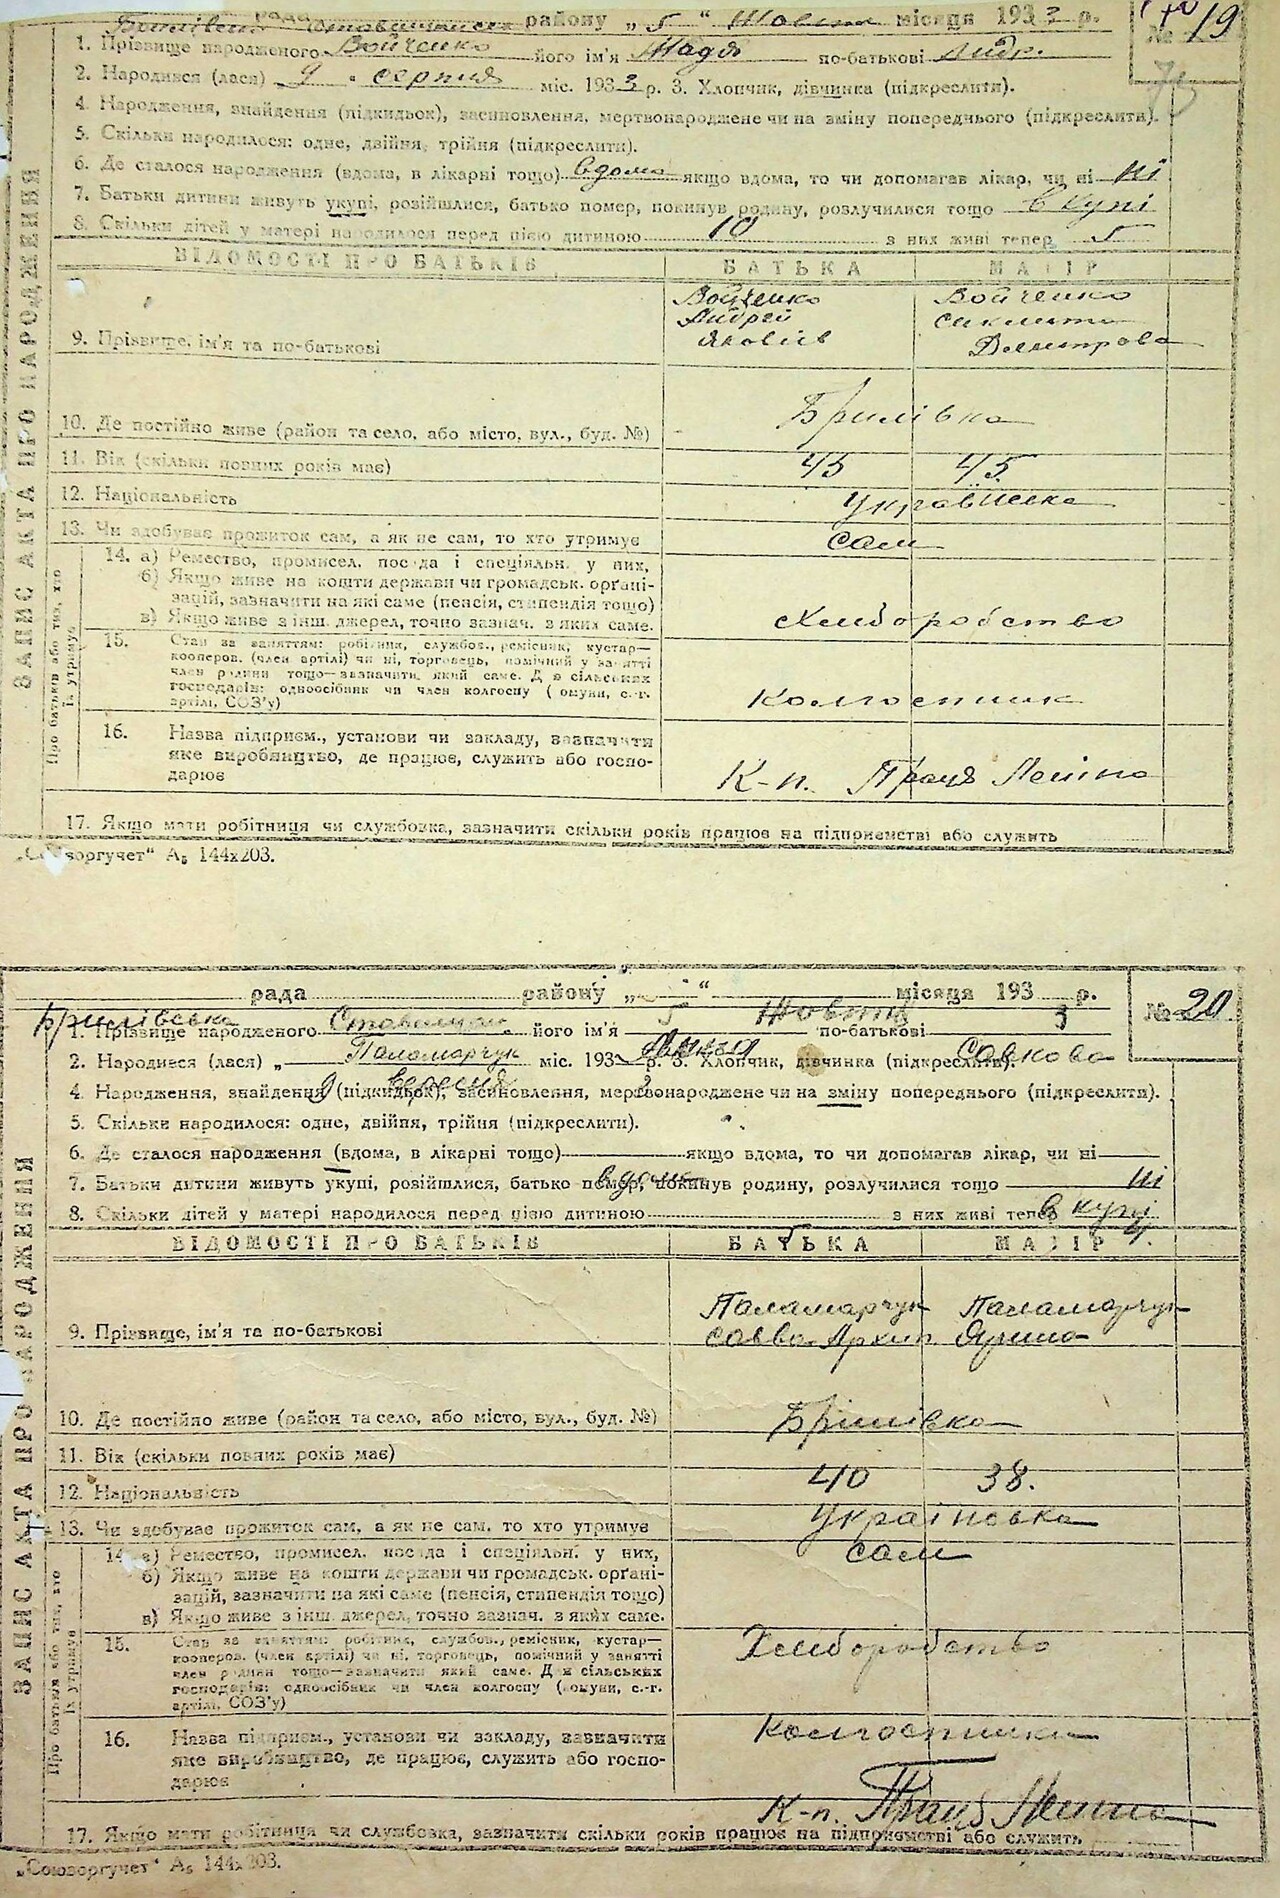 рада районы „ 5 “ Жовтня місяця 1933 р.
№ 19
1. Прізвище народженого Войченко його ім'я Надя по-батькові Андр.
2. Народився (лася) 9 серпня міс. 1933 р. 3. Хлопчик, дівчинка (підкреслити).
4. Народження, знайдення (підкидьок), засиновлення, мертвонароджене чи на зміну попереднього (підкреслити).
5. Скільки народилося: одне, двійня, трійня (підкреслити).
6. Де сталося народження (вдома, в лікарні тощо) вдома якщо вдома, то чи допомагав лікар, чи ні ні
7. Батьки дитини живуть укупі, розійшлися, батько помер, покинув родину, розлучилися тощо в купі
8. Скільки дітей у матері народилося перед цією дитиною 10 з них живі тепер 5
ВІДОМОСТІ ПРО БАТЬКІВ БАТЬКА МАТІР
Войченко Войченко
Андрей
Яковів Дмитрова
9. Прізвище, ім'я та по-батькові
10. Де постійно живе (район та село, або місто, вул., буд. №) Брилівка
11. Вік (скільки повних років має) 45 45
12. Національність Українська
13. Чи здобуває прожиток сам, а як не сам, то хто утримує сам
14. а) Ремество, промисел, посада і спеціяльн. у них,
б) Якщо живе на кошти держави чи громадськ. орґані-
зацій, зазначити на які саме (пенсія, стипендія тощо)
в) Якщо живе з інш. джерел, точно зазнач. з яких саме. Хліборобство
15. Стан за заняттям: робітник, службов., ремісник, кустар—
кооперов. (член артілі) чи ні, торговець, помічний у занятті
член родини тощо—зазначити який саме. Для сільських
господарів: одноосібник чи член колгоспу (комуни, с.-г.
артілі, СОЗ'у) Колгоспник
16. Назва підприєм., установи чи закладу, зазначити
яке виробництво, де працює, служить або госпо-
дарює К-п. Праця Леніна
17. Якщо мати робітниця чи службовка, зазначити скільки років працює на підприємстві або служить
ЗАПИС АКТА ПРО НАРОДЖЕННЯ
Про батьків або тих, хто їх утримує
„Союзоргучет“ А₅ 144х203.
рада району „ 5 “ Жовтня місяця 1933 р.
№ 20
Брилівська
1. Прізвище народженого його ім'я по-батькові
2. Народився (лася) „ Паламарчук міс. 193 р. 3. Хлопчик, дівчинка (підкреслити). Савкова
9 вересня 3
4. Народження, знайдення (підкидьок), засиновлення, мертвонароджене чи на зміну попереднього (підкреслити).
5. Скільки народилося: одне, двійня, трійня (підкреслити).
6. Де сталося народження (вдома, в лікарні тощо) якщо вдома, то чи допомагав лікар, чи ні
7. Батьки дитини живуть укупі, розійшлися, батько помер, покинув родину, розлучилися тощо ні
вдома
8. Скільки дітей у матері народилося перед цією дитиною з них живі тепер в купі
ВІДОМОСТІ ПРО БАТЬКІВ БАТЬКА МАТІР
Паламарчук Паламарчук
Савва Архип. Ярина
9. Прізвище, ім'я та по-батькові
10. Де постійно живе (район та село, або місто, вул., буд. №) Брилівка
11. Вік (скільки повних років має) 40 38.
12. Національність Українська
13. Чи здобуває прожиток сам, а як не сам, то хто утримує сам
14. а) Ремество, промисел, посада і спеціяльн. у них,
б) Якщо живе на кошти держави чи громадськ. орґані-
зацій, зазначити на які саме (пенсія, стипендія тощо)
в) Якщо живе з інш. джерел, точно зазнач. з яких саме. Хліборобство
15. Стан за заняттям: робітник, службов., ремісник, кустар—
кооперов. (член артілі) чи ні, торговець, помічний у занятті
член родини тощо—зазначити який саме. Для сільських
господарів: одноосібник чи член колгоспу (комуни, с.-г.
артілі, СОЗ'у) Колгоспники
16. Назва підприєм., установи чи закладу, зазначити
яке виробництво, де працює, служить або госпо-
дарює К-п. Праця Леніна
17. Якщо мати робітниця чи службовка, зазначити скільки років працює на підприємстві або служить
ЗАПИС АКТА ПРО НАРОДЖЕННЯ
Про батьків або тих, хто їх утримує
„Союзоргучет“ А₅ 144х203.